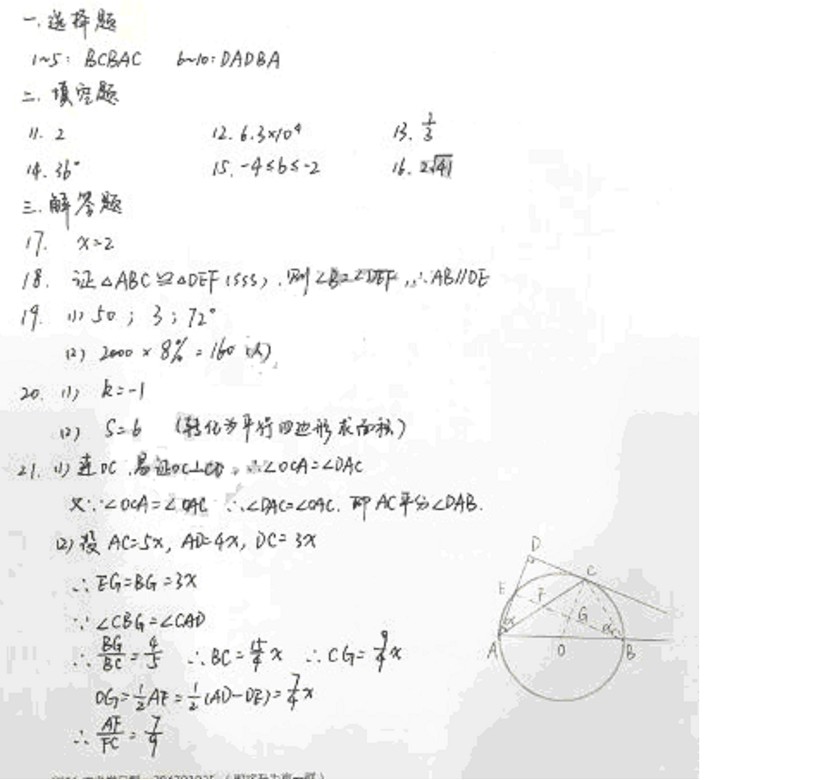 一.选择题
1~5: BCBAC 6~10: DADBA
二.填空题
11. 2 12. 6.3×10⁴ 13. 2/3
14. 36° 15. -4≤b≤-2 16. 2√41
三.解答题
17. x=2
18. 证△ABC≌△DEF(SSS), 则∠B=∠DEF, ∴AB//DE
19. (1) 50; 3; 72°
(2) 2000×8%=160(人)
20. (1) k=-1
(2) S=6 (转化为平行四边形求面积)
21. (1) 连OC, 易证OC⊥CD, ∴∠OCA=∠DAC
又∵∠OCA=∠OAC ∴∠DAC=∠OAC. 即AC平分∠DAB.
(2) 设AC=5x, AD=4x, DC=3x
∴EG=BG=3x
∵∠CBG=∠CAD
∴BG/BC=4/5 ∴BC=15/4x ∴CG=9/4x
OG=1/2AE=1/2(AD-DE)=7/4x
∴AF/FC=7/9
D
C
E F
α G α
A O B